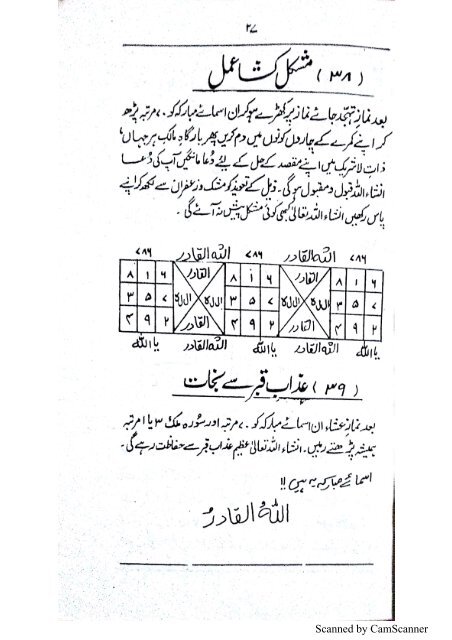 ۲۷
(۳۸) مشکل کشا عمل
بعد نمازِ تہجد جائے نماز پر کھڑے ہو کر ان اسمائے مبارکہ کو ۷۰ مرتبہ پڑھ
کر اپنے کمرے کے چاروں کونوں میں دم کریں پھر بارگاہِ مالکِ ہر جہاں،
ذاتِ لاشریک میں اپنے مقصد کے حل کے لیئے دعا مانگیں آپ کی دُعا
انشاء اللہ قبول و مقبول ہو گی۔ ذیل کے تعویذ کو مشک و زعفران سے لکھ کر اپنے
پاس رکھیں انشاء اللہ تعالیٰ کبھی کوئی مشکل پیش نہ آئے گی۔
۷۸۶ اللہ القادر ۷۸۶ اللہ القادر ۷۸۶
۸ ۱ ۶ القادر ۸ ۱ ۶ القادر ۸ ۱ ۶
۳ ۵ ۷ اللہ اللہ ۳ ۵ ۷ اللہ اللہ ۳ ۵ ۷
۴ ۹ ۲ القادر ۴ ۹ ۲ القادر ۴ ۹ ۲
یا اللہ اللہ القادر یا اللہ اللہ القادر یا اللہ
(۳۹) عذاب قبر سے نجات
بعد نمازِ عشاء ان اسمائے مبارکہ کو ۷۰ مرتبہ اور سورہ ملک ۳ یا ۱ مرتبہ
ہمیشہ پڑھتے رہیں۔ انشاء اللہ تعالیٰ عظیم عذاب قبر سے حفاظت رہے گی۔
اسمائے مبارکہ یہ ہیں !!
اللہُ القادرُ
Scanned by CamScanner